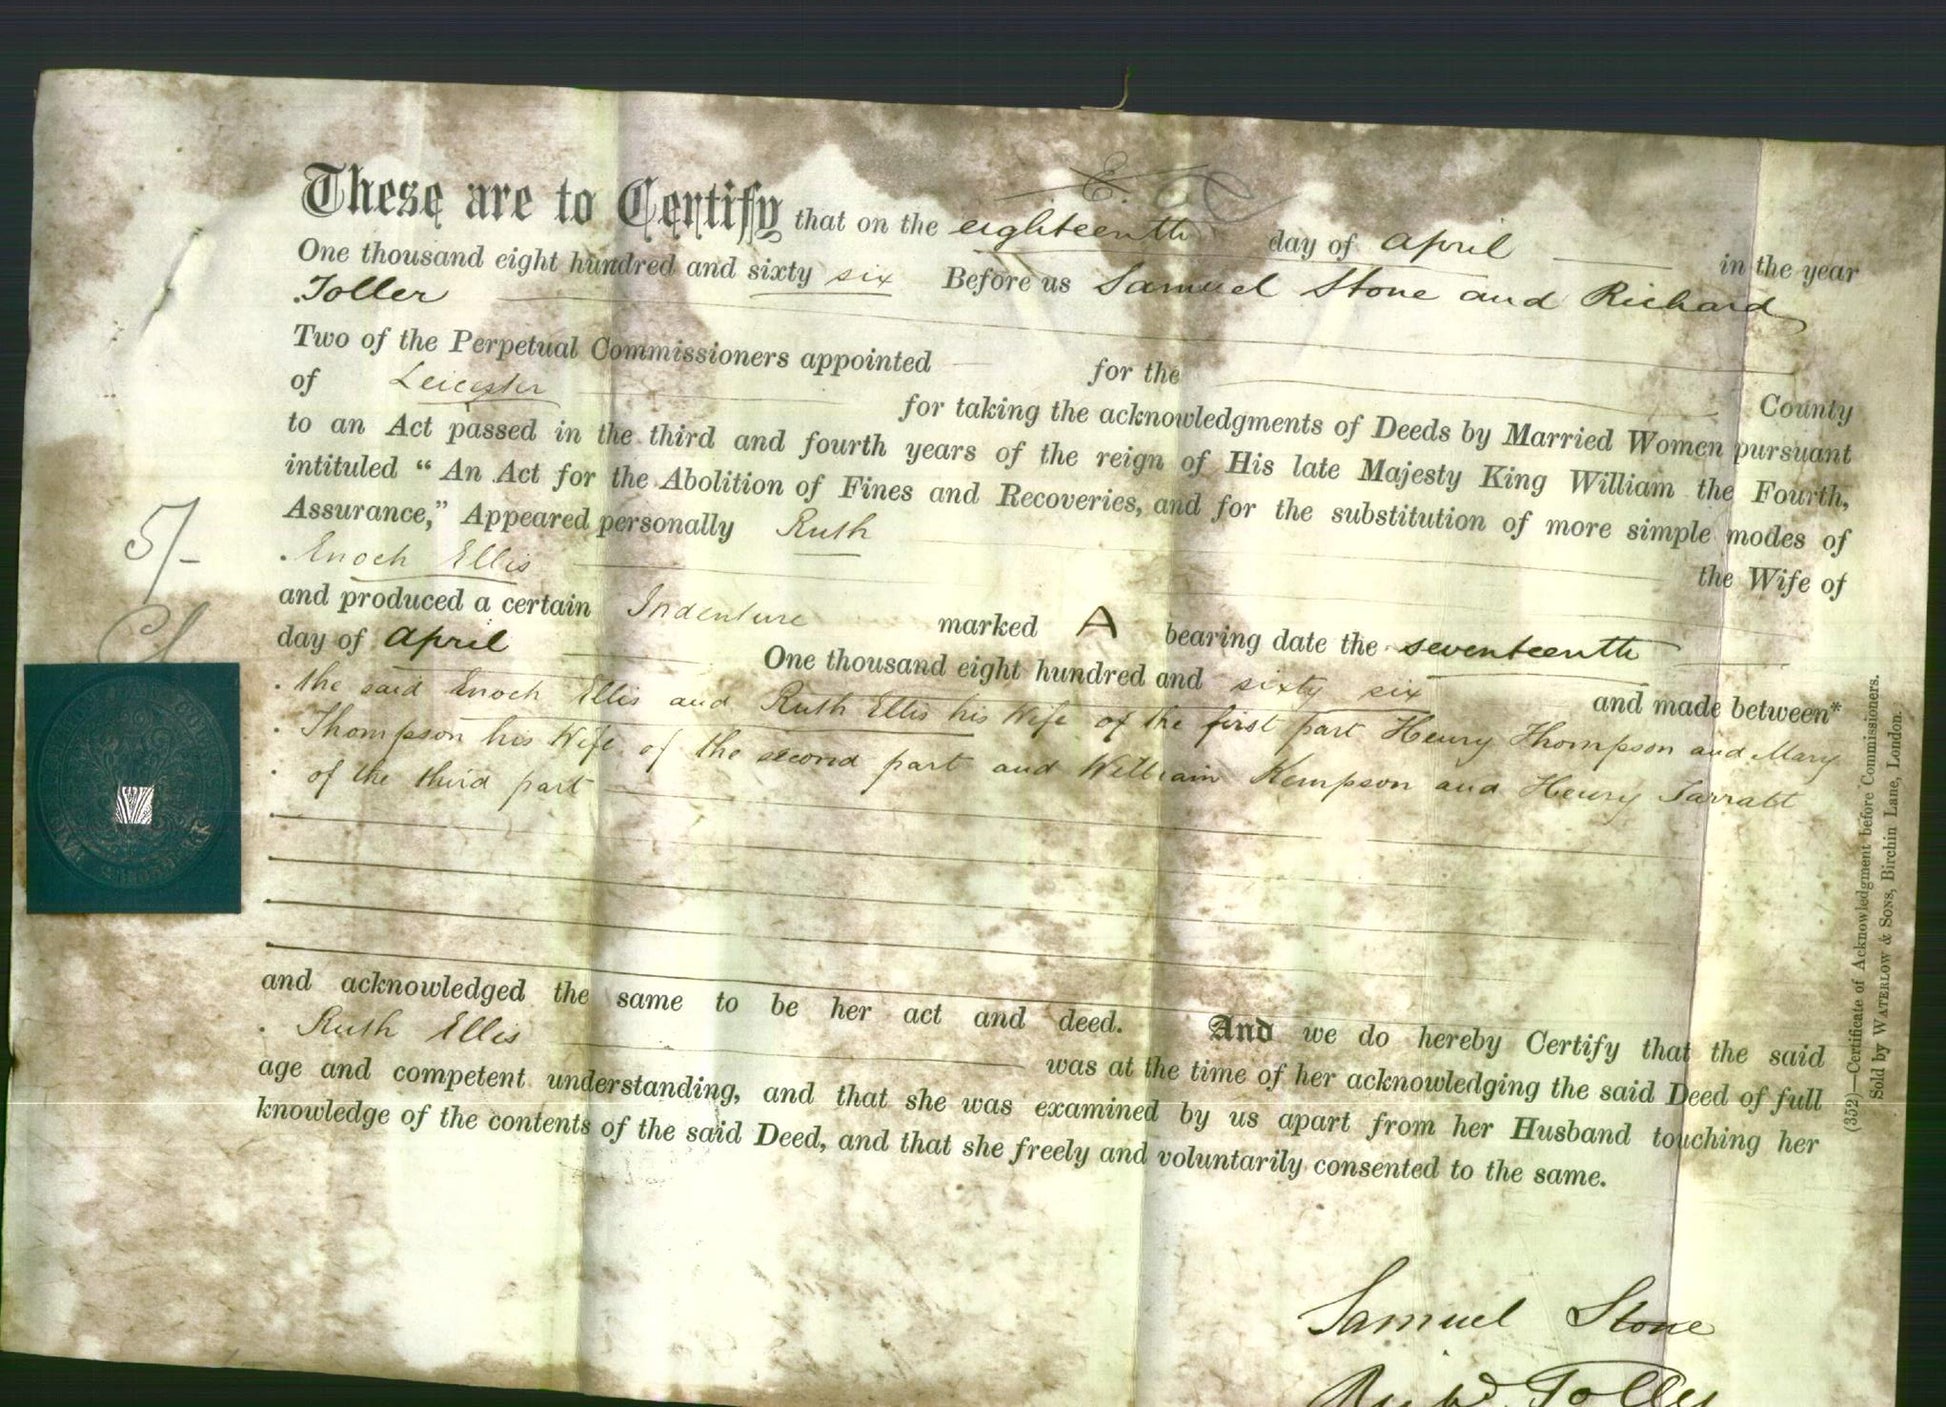 E. C
These are to Certify that on the eighteenth day of April in the year
One thousand eight hundred and sixty six Before us Samuel Stone and Richard
Toller
Two of the Perpetual Commissioners appointed for the County
of Leicester for taking the acknowledgments of Deeds by Married Women pursuant
to an Act passed in the third and fourth years of the reign of His late Majesty King William the Fourth,
intituled “An Act for the Abolition of Fines and Recoveries, and for the substitution of more simple modes of
Assurance,” Appeared personally Ruth the Wife of
Enoch Ellis
and produced a certain Indenture marked A bearing date the seventeenth
day of April One thousand eight hundred and sixty six and made between*
the said Enoch Ellis and Ruth Ellis his Wife of the first part Henry Thompson and Mary
Thompson his Wife of the second part and William Kempson and Henry Tarratt
of the third part
and acknowledged the same to be her act and deed. And we do hereby Certify that the said
Ruth Ellis was at the time of her acknowledging the said Deed of full
age and competent understanding, and that she was examined by us apart from her Husband touching her
knowledge of the contents of the said Deed, and that she freely and voluntarily consented to the same.
Samuel Stone
Richd Toller
5/-
(352)—Certificate of Acknowledgment before Commissioners.
Sold by WATERLOW & SONS, Birchin Lane, London.